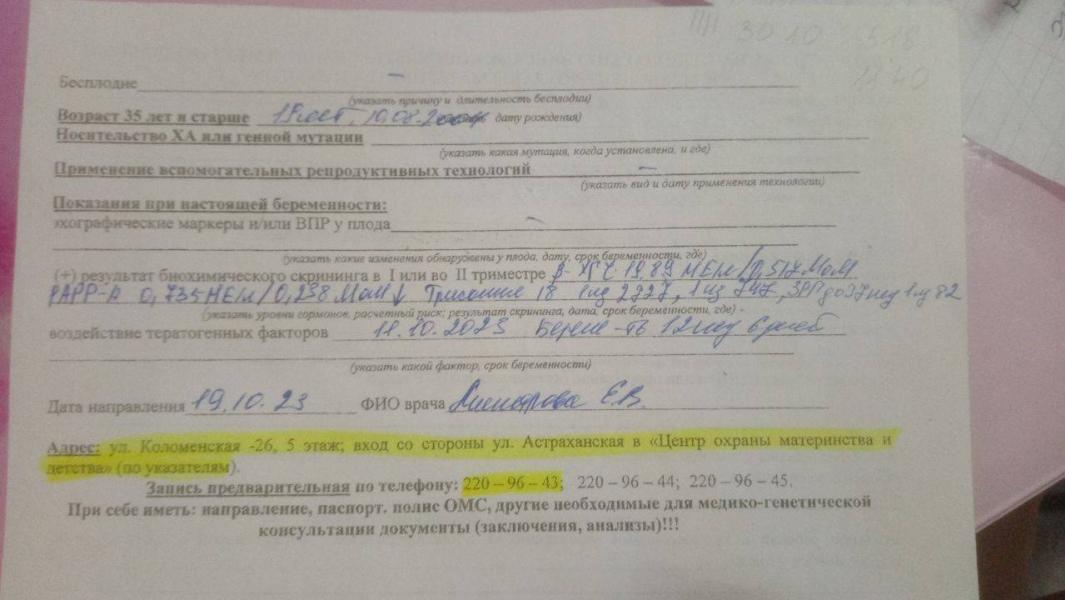 ПН 30.10
Бесплодие –
(указать причину и длительность бесплодии)
Возраст 35 лет и старше 19 лет, 10.08.2004 дату рождения)
Носительство ХА или генной мутации
(указать какая мутация, когда установлена, и где)
Применение вспомогательных репродуктивных технологий –
(указать вид и дату применения технологии)
Показания при настоящей беременности:
эхографические маркеры и/или ВПР у плода –
(указать какие изменения обнаружены у плода, дату, срок беременности, где)
(+) результат биохимического скрининга в I или во II триместре β-ХГЧ 19,89 МЕ/л/0,517 МоМ
PAPP-A 0,735 МЕ/л/0,238 МоМ↓ Трисомия 18 1 из 2727, 1 из 747, ЗРР до 37 нед 1 из 82
(указать уровни гормонов, расчетный риск; результат скрининга, дата, срок беременности, где) -
воздействие тератогенных факторов 18.10.2023 Берем-ть 12 нед 6 дней
(указать какой фактор, срок беременности)
Дата направления 19.10.23 ФИО врача Е.В.
Адрес: ул. Коломенская -26, 5 этаж; вход со стороны ул. Астраханская в «Центр охраны материнства и
детства» (по указателям).
Запись предварительная по телефону: 220 – 96 – 43; 220 – 96 – 44; 220 – 96 – 45.
При себе иметь: направление, паспорт. полис ОМС, другие необходимые для медико-генетической
консультации документы (заключения, анализы)!!!